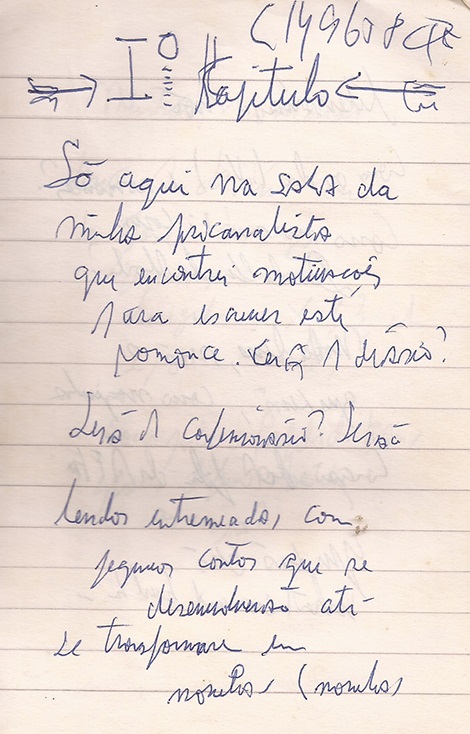 Iº Kapitulo
Só aqui na sala da
minha psicanalista
que encontrei motivação
para escrever este
romance. Será 1 diário?
Será 1 confessionário? Será
lendos entremeados, com
pequenos contos que se
desenvolverão até
se transformare em
novelas (novelas